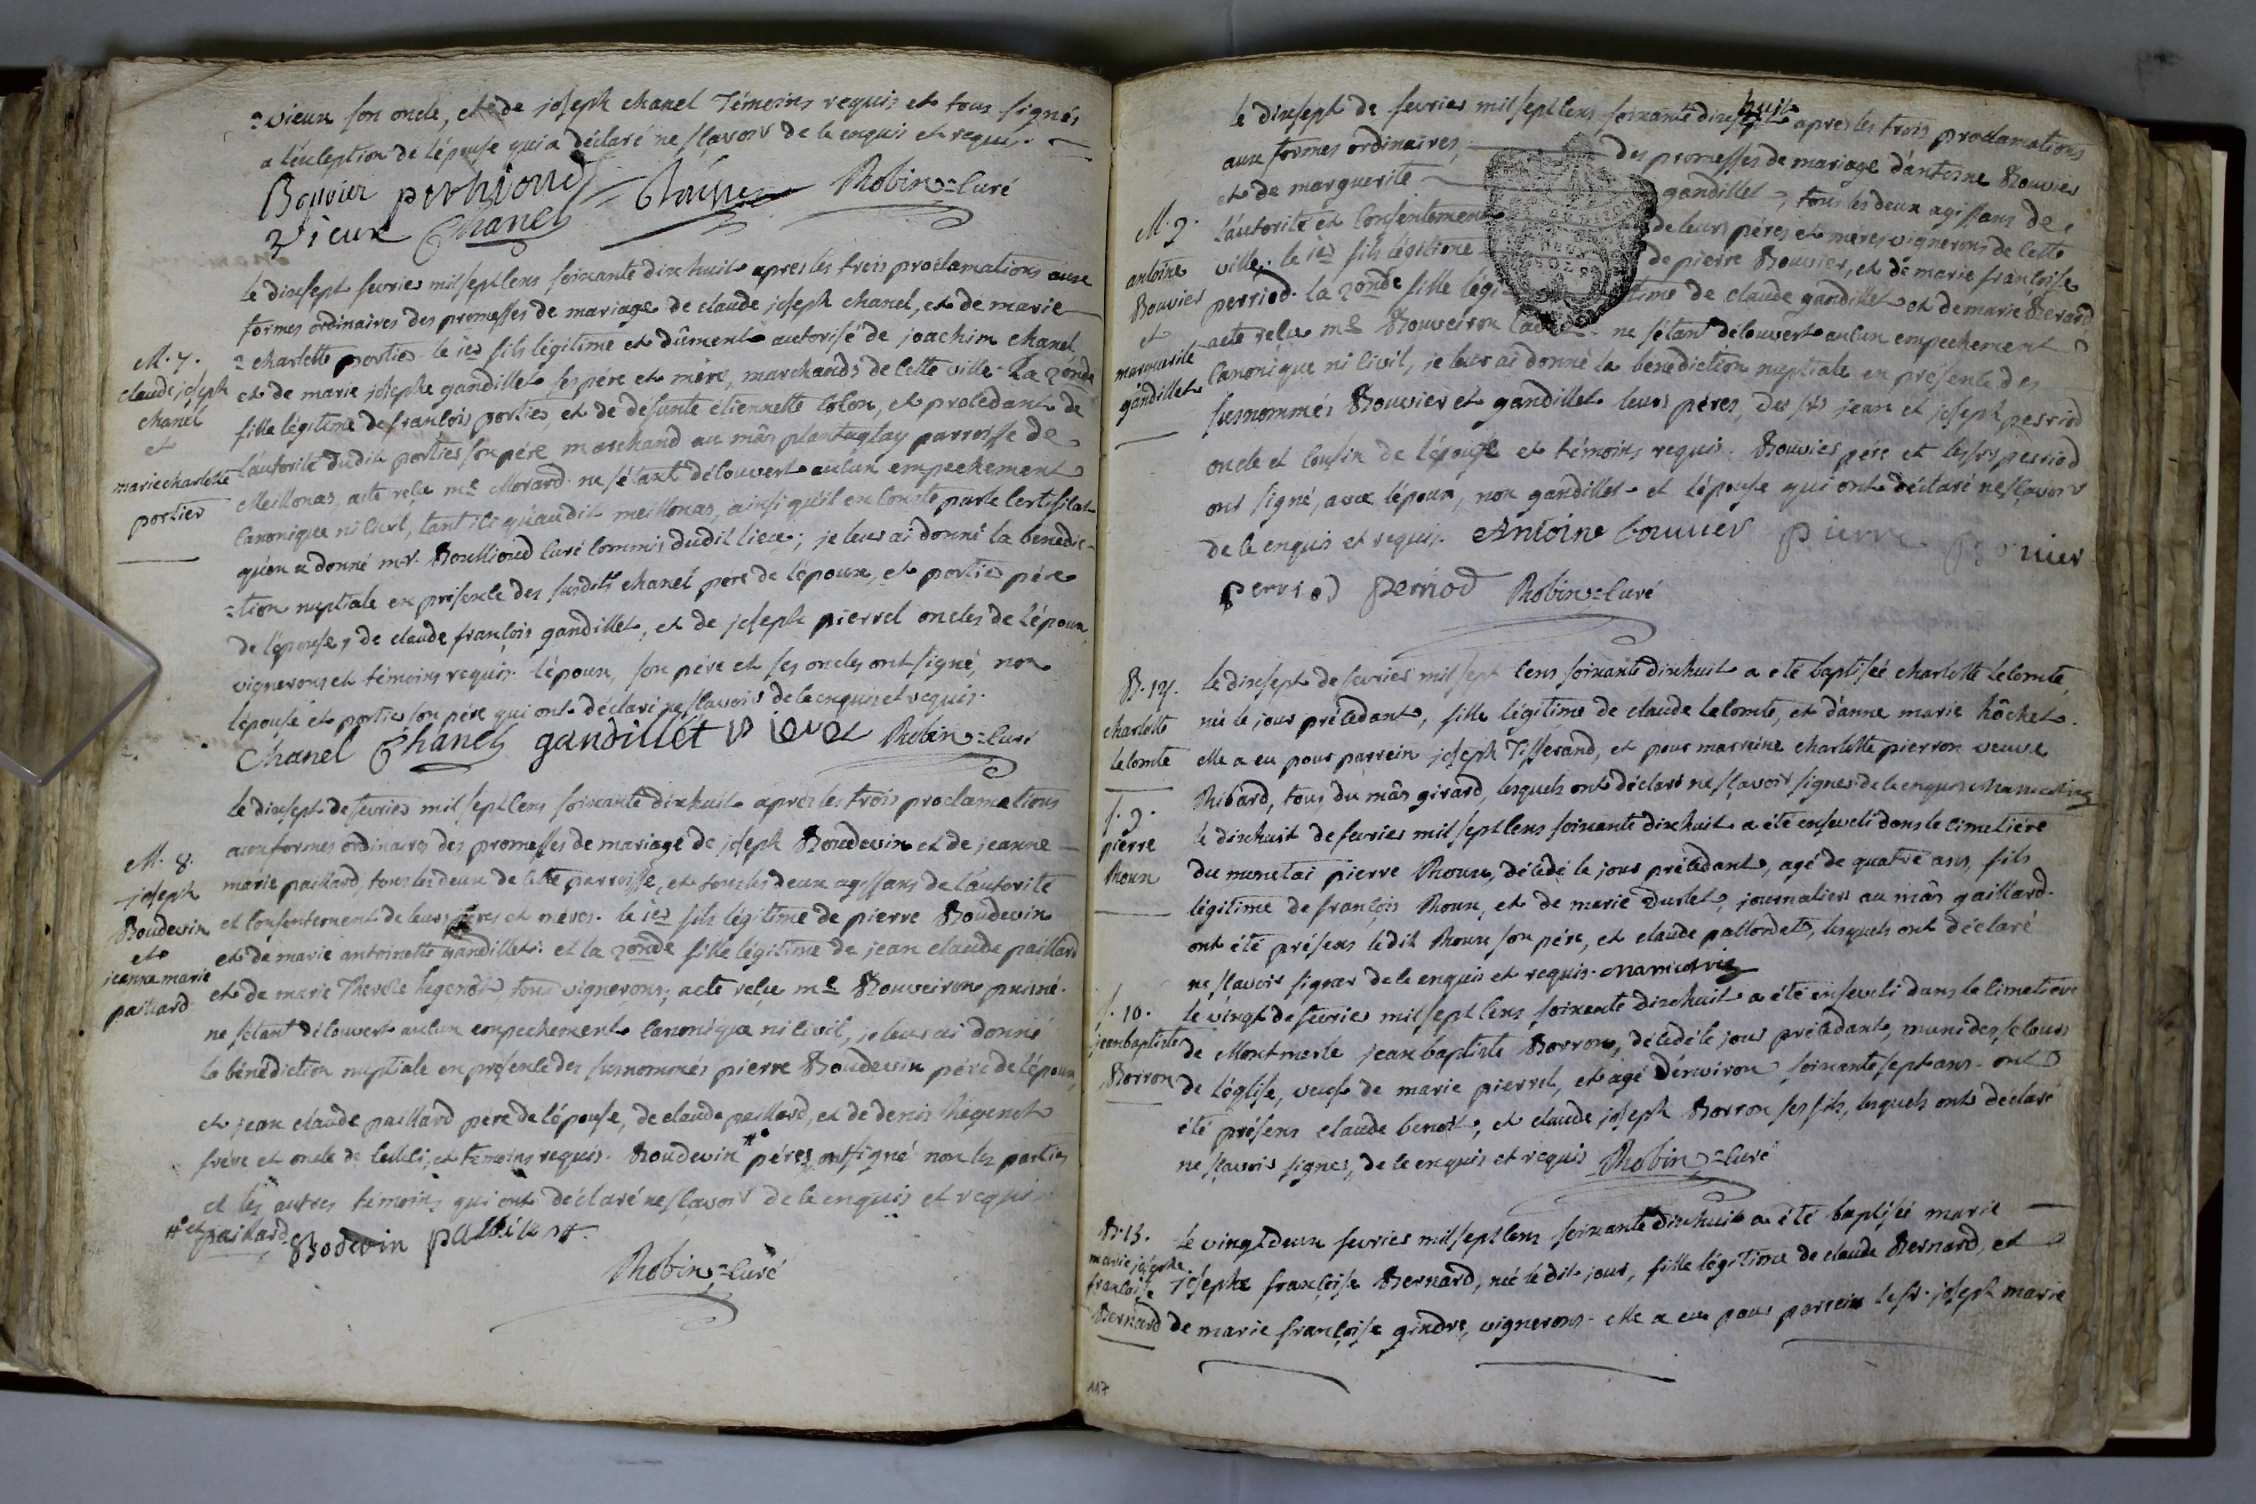 =vieux son oncle, et de joseph chanel Témoins requis et tous signés
a l'éxception de l'épouse qui a déclaré ne sçavoir de ce enquis et requis.
Bouvier
Robin = Curé
vieux Chanel
le dixsept fevrier mil sept cens soixante dix huit apres les trois proclamations aux
formes ordinaires des promesses de mariage de claude joseph chanel, et de marie
= charlotte portier le 1er fils légitime et dûment autorisé de joachim chanel,
et de marie josephe gandillet ses pére et mére, marchands de cette ville. La 2onde
fille légitime de françois portier, et de défunte étiennette Colon, et procédant de
l'autorité dudit portier son pére marchand au mâs plantaglay parroisse de
Meillonas, acte reçu me Morard. ne s'étant découvert aucun empechement
Canonique ni Civil, tant ici qu'audit meillonas, ainsi qu'il en Conste par le Certificat
qu'en a donné mr. Curé Commis dudit lieu; je leur ai donné la bénédic-
=tion nuptiale en présence des susdits chanel pére de l'époux, et portier pére
de l'épouse, de claude françois gandillet, et de joseph pierrel oncles de l'époux,
vignerons et témoins requis. l'époux, son pére et ses oncles ont signé, non
l'épouse et portier son pére qui ont déclaré ne sçavoir de ce enquis et requis.
Chanel Chanel gandillet Robin = Curé
M. 7.
claude joseph
chanel
et
marie charlotte
portier
le dixsept de fevrier mil sept cens soixante dix huit apres les trois proclamations
aux formes ordinaires des promesses de mariage de joseph Boudevin et de jeanne
marie paillard, tous les deux de cette parroisse, et tous les deux agissans de l'autorité
et consentement de leurs péres et méres. le 1er fils légitime de pierre Boudevin
et de marie antoinette gandillet: et la 2onde fille légitime de jean claude paillard
et de marie Therese, tous vignerons; acte reçu me Bouveiron puiné.
ne s'étant découvert aucun empechement Canonique ni civil, je leur ai donné
la bénédiction nuptiale en présence des susnommés pierre Boudevin pére de l'époux,
et jean claude paillard pére de l'épouse, de claude paillard, et de denis
frére et oncle de celle ci, et témoins requis. Boudevin # péres, ont signé non les parties
et les autres témoins qui ont déclaré ne sçavoir de ce enquis et requis
# et paillard. Bodevin
Robin = Curé
M. 8.
joseph
Boudevin
et
jeanne marie
paillard
le dixsept de fevrier mil sept cens soixante dix huit apres les trois proclamations
aux formes ordinaires, des promesses de mariage d'antoine Bouvier
et de marguerite gandillet, tous les deux agissans de
l'autorité et Consentement de leurs péres et méres vignerons de cette
ville. le 1er fils légitime de pierre Bouvier, et de marie françoise
perriod. la 2onde fille légitime de claude gandillet et de marie Berard
acte reçu me Bouveiron ne s'étant découvert aucun empechement
Canonique ni Civil, je leur ai donné la bénédiction nuptiale en présence des
susnommés Bouvier et gandillet leurs péres, des srs jean et joseph perriod
oncle et Cousin de l'épouse et témoins requis. Bouvier pére et les srs perriod
ont signé, avec l'époux, non gandillet et l'épouse qui ont déclaré ne sçavoir
de ce enquis et requis. Antoine bouvier pierre Bouvier
perriod perriod Robin = Curé
M. 9.
antoine
Bouvier
et
marguerite
gandillet
B. 14.
charlotte
lecomte
le dixsept de fevrier mil sept cens soixante dix huit a été baptisée charlotte lecomte,
née le jour précédant, fille légitime de claude lecomte, et d'anne marie hôchet.
elle a eu pour parrein joseph Tisserand, et pour marreine charlotte pierron veuve
Ribard, tous du mâs girard, lesquels ont déclaré ne sçavoir signer de ce enquis
S. 9.
pierre
Roux
le dixhuit de fevrier mil sept cens soixante dix huit a été enseveli dans le cimetiére
du pierre Roux, décédé le jour précédant, agé de quatre ans, fils
légitime de françois Roux, et de marie, journaliers au mâs gaillard.
ont été présens ledit Roux son pére, et claude, lesquels ont déclaré
ne sçavoir signer de ce enquis et requis.
S. 10.
jean baptiste
Borron
le vingt de fevrier mil sept cens soixante dix huit a été enseveli dans le cimetiére
de Montmerle jean baptiste Borron, décédé le jour précédant, muni des secours
de l'église, veuf de marie pierrel, et agé d'environ soixante sept ans. ont
été présens claude benoit, et claude joseph Borron ses fils, lesquels ont déclaré
ne sçavoir signer, de ce enquis et requis Robin = Curé
B. 15.
marie josephe
françoise
Bernard
le vingt deux fevrier mil sept cens soixante dix huit a été baptisée marie
josephe françoise Bernard, née le dit jour, fille légitime de claude Bernard, et
de marie françoise gindre, vignerons. elle a eu pour parrein le sr. joseph marie
117